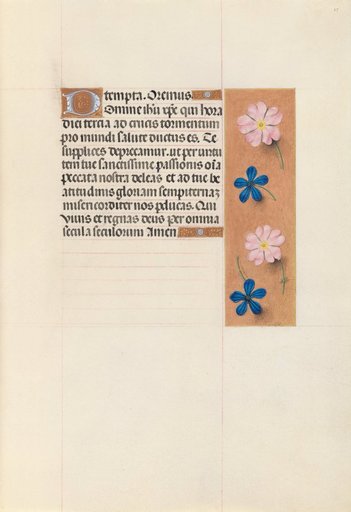 tempta. Oremus
Domine ihu xpe qui hora
diei tercia ad crucis tormentum
pro mundi salute ductus es. Te
supplices deprecamur. ut per virtu
tem tue sanctissime passionis oīa
peccata nostra deleas et ad tue be
atitudinis gloriam sempiternaz
misericorditer nos pducas. Qui
viuis et regnas deus per omnia
secula seculorum Amen